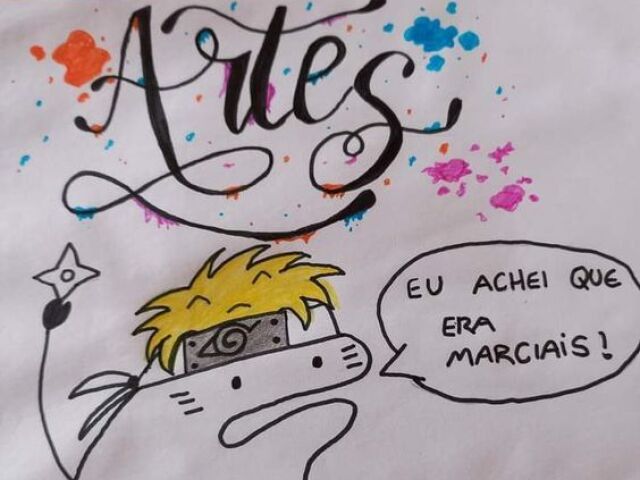 Artes
EU ACHEI QUE
ERA
MARCIAIS!